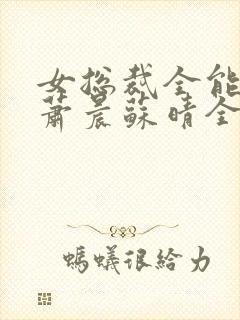 女总裁全能
萧晨苏晴全
螞蟻很给力